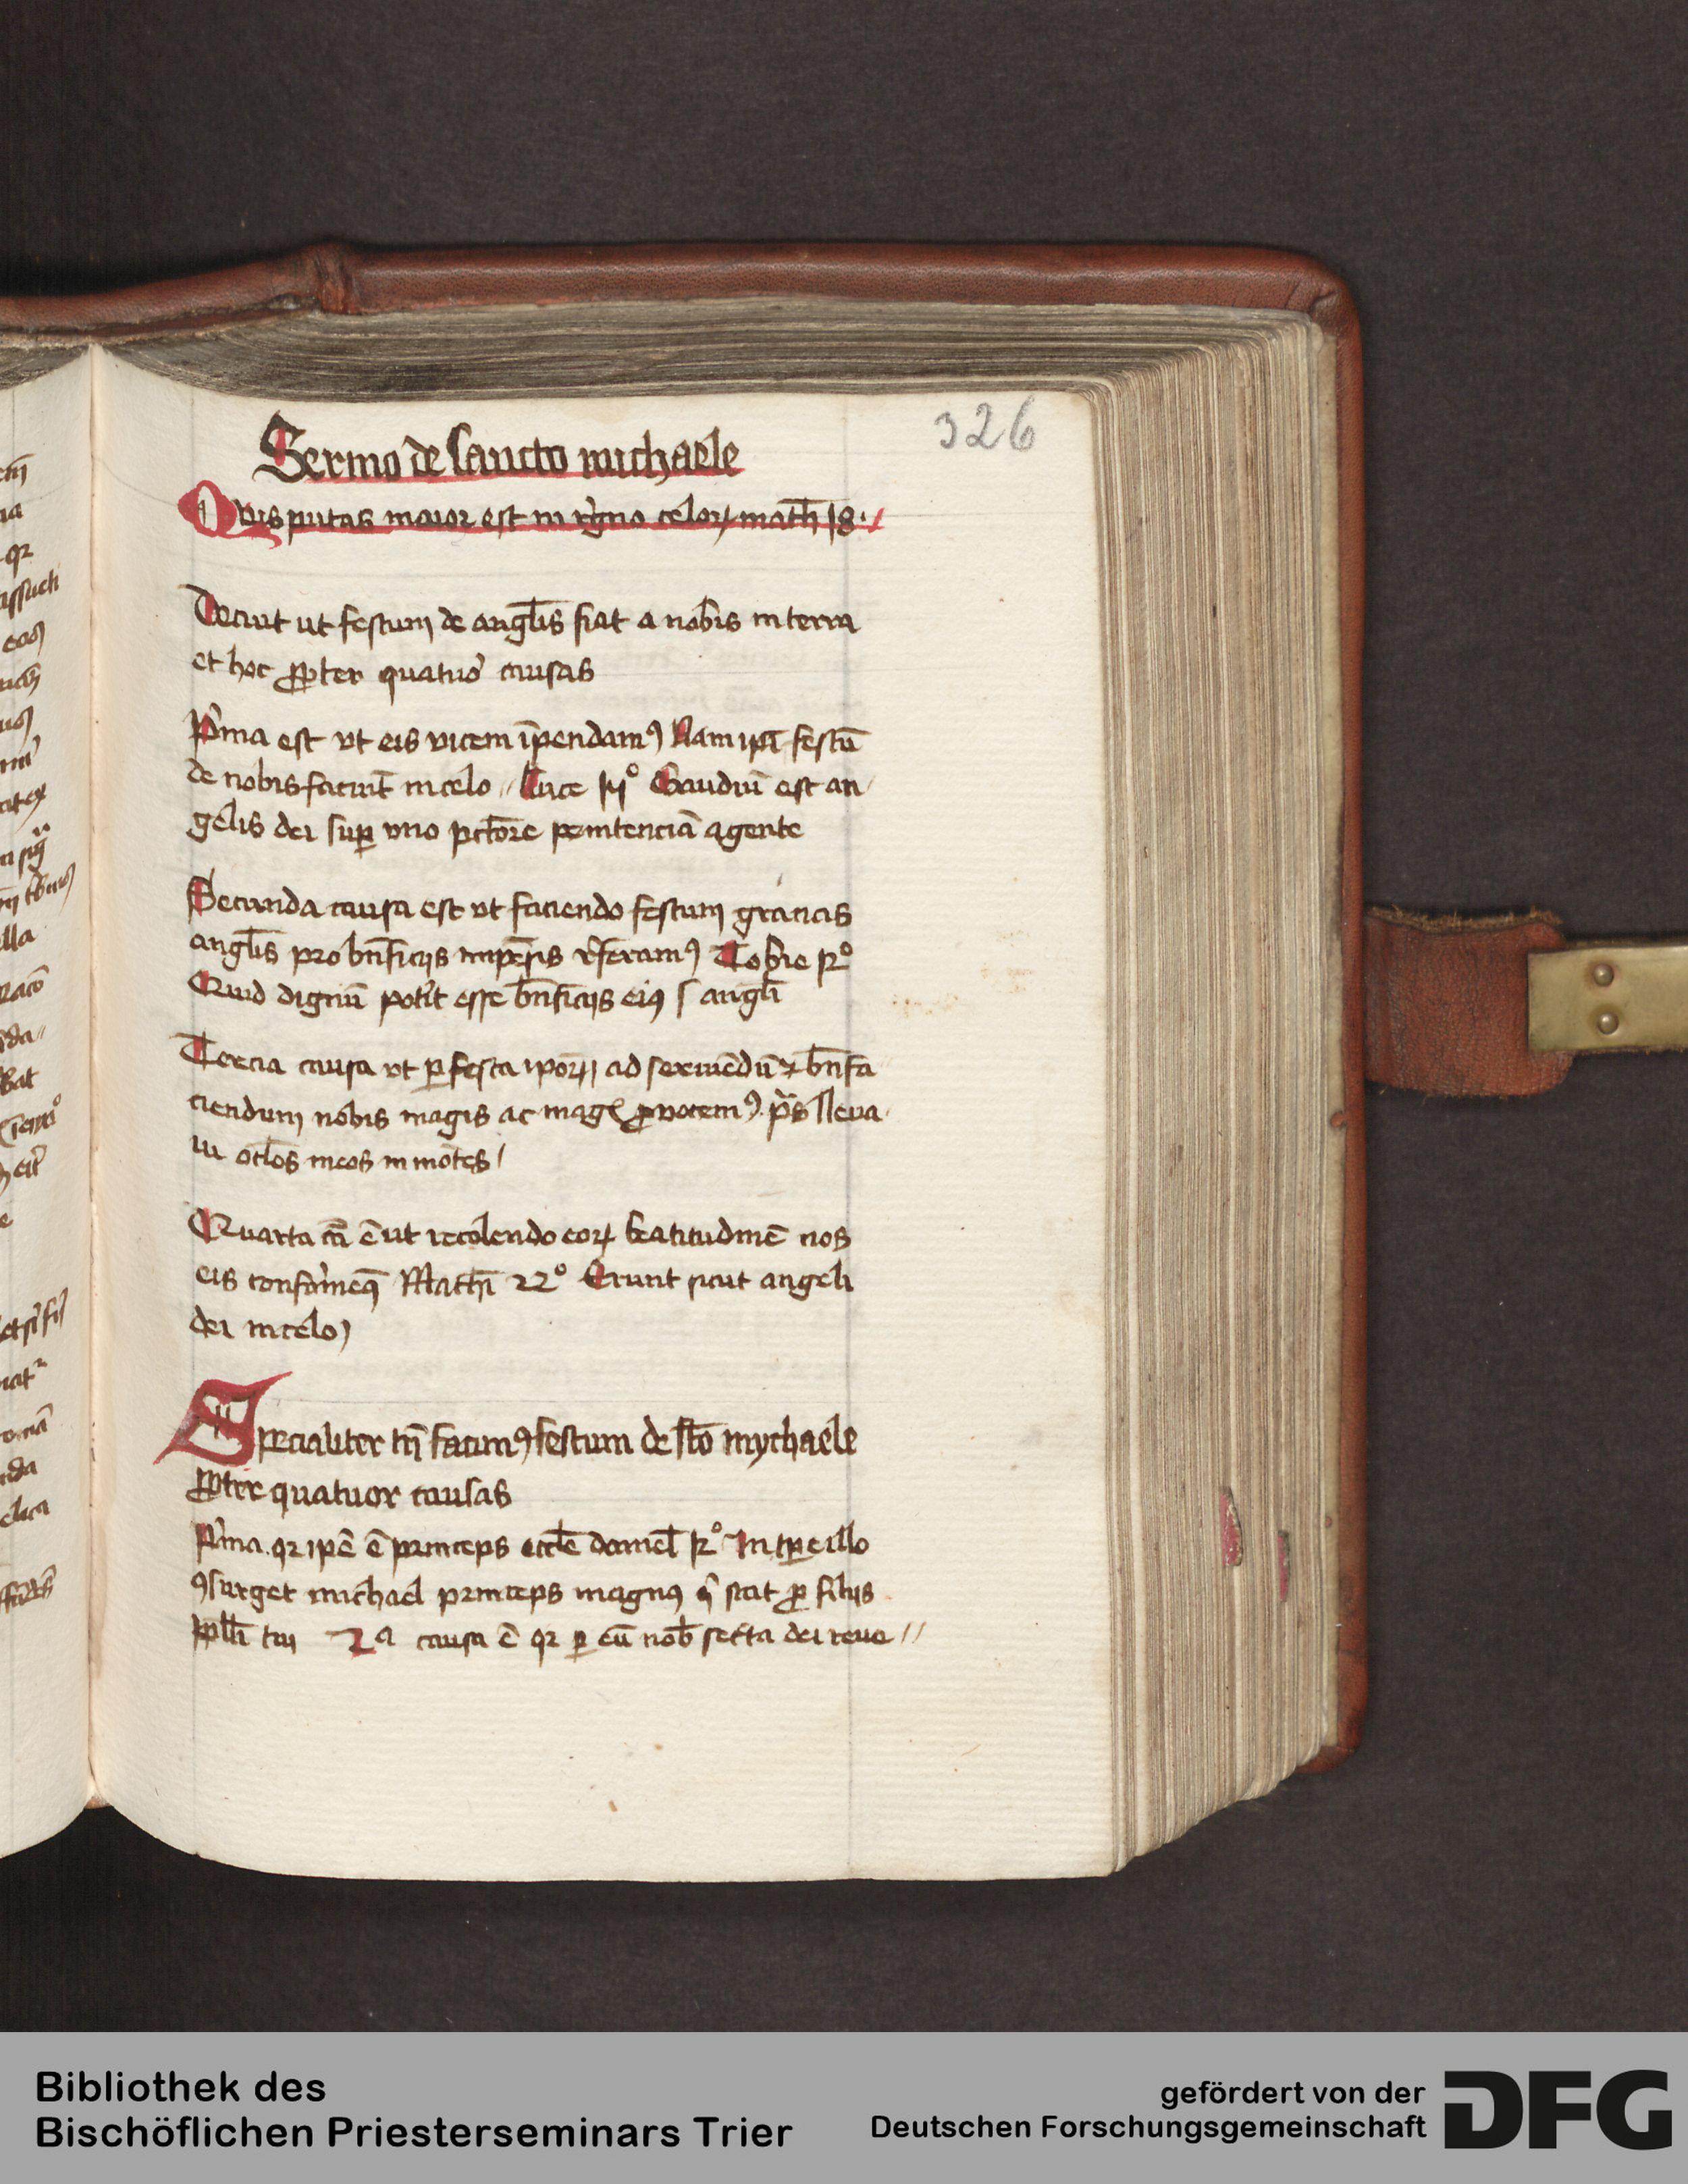 326
Sermo de sancto michaele
Quis putas maior est in regno celoꝝ math̄ 18·
Decuit ut festum de angl̄is fiat a nobis in terra
et hoc ꝓpter quatuoʳ causas
Pͥma est vt eis vicem īpendamꝰ Nam ip̄i festū
de nobis faciūt in celo // Luce 15° Gaudiū est an
gelis dei suꝑ vno pct̄ore penitenciā agente
Secunda causa est vt faciendo festum gracias
angl̄is pro bn̄ficijs impēsis referamꝰ Tobie 12°
Quid dignū potͥt esse bn̄ficijs eiꝰ s angl̄i
Tercia causa vt ꝑ festa ip̄oꝝ ad seruiēdū ⁊ bn̄fa
ciendum nobis magis ac mag ꝓuocemꝰ p̄s lleua
ui oc̄los meos in mōtes /
Quarta cā ē ut recolendo eoꝝ beatitudinē nos
eis conformeꝰ Math̄i 22° Erunt sicut angeli
dei in celo
Specialiter tn̄ facimꝰ festum de sc̄o mychaele
ꝓpter quatuor causas
Pͥma qꝛ ip̄e ē princeps eccl̄e daniel̄ 12° In tp̄e illo
ꝯsurget michael princeps magnꝰ qͥ stat ꝓ filijs
ppl̄i tui 2ᵃ causa ē qꝛ ꝑ eū nob̄ secͬta dei reue //
Bibliothek des
Bischöflichen Priesterseminars Trier
gefördert von der
Deutschen Forschungsgemeinschaft
DFG